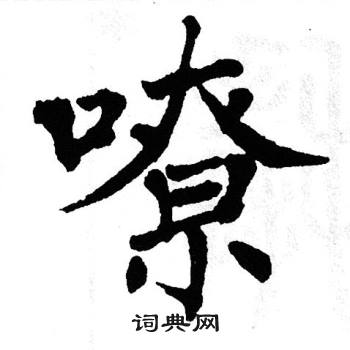 嘹
词典网